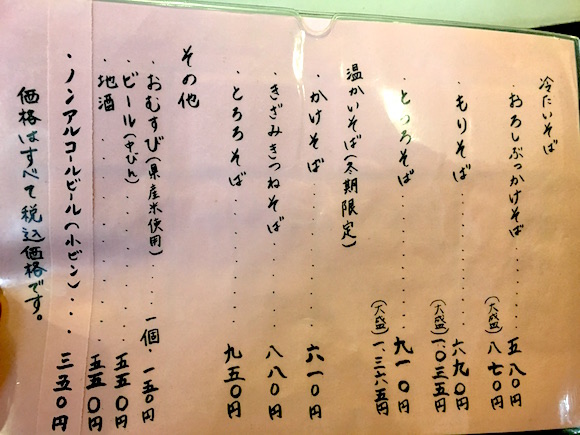 冷たいそば
・おろしぶっかけそば・・・五八〇円
(大盛)八七〇円
・もりそば・・・・・・・六九〇円
(大盛)一、〇三五円
・とろろそば・・・・・・九一〇円
(大盛)一、三六五円
温かいそば(冬期限定)
・かけそば・・・・・・・六一〇円
・きざみきつねそば・・・・八八〇円
・とろろそば・・・・・・九五〇円
その他
・おむすび(県産米使用)・・・一個・一五〇円
・ビール(中びん)・・・・・・五五〇円
・地酒・・・・・・・・・五五〇円
・ノンアルコールビール(小ビン)・・・三五〇円
価格はすべて税込価格です。